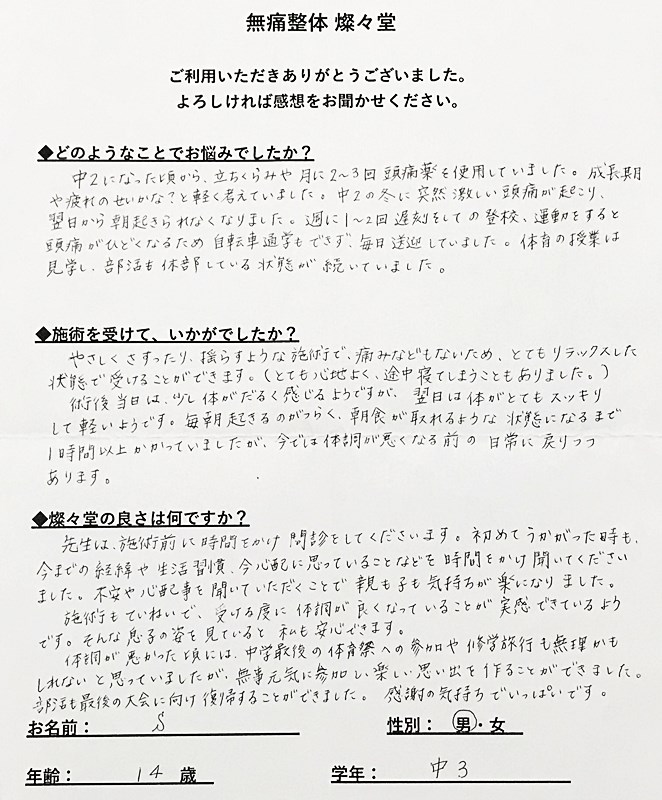 無痛整体 燦々堂
ご利用いただきありがとうございました。
よろしければ感想をお聞かせください。
◆どのようなことでお悩みでしたか?
中2になった頃から、立ちくらみや月に2~3回頭痛薬を使用していました。成長期
や疲れのせいかな?と軽く考えていました。中2の冬に突然激しい頭痛が起こり、
翌日から朝起きられなくなりました。週に1~2回遅刻をしての登校、運動をすると
頭痛がひどくなるため自転車通学もできず、毎日送迎していました。体育の授業は
見学し、部活も休部している状態が続いていました。
◆施術を受けて、いかがでしたか?
やさしくさすったり、揺らすような施術で、痛みなどもないため、とてもリラックスした
状態で受けることができます。(とても心地よく、途中寝てしまうこともありました。)
術後当日は、少し体がだるく感じるようですが、翌日は体がとてもスッキリ
して軽いようです。毎朝起きるのがつらく、朝食が取れるような状態になるまで
1時間以上かかっていましたが、今では体調が悪くなる前の日常に戻りつつ
あります。
◆燦々堂の良さは何ですか?
先生は、施術前に時間をかけ問診をしてくださいます。初めてうかがった時も、
今までの経緯や生活習慣、今心配に思っていることなどを時間をかけ聞いてください
ました。不安や心配事を聞いていただくことで親も子も気持ちが楽になりました。
施術もていねいで、受ける度に体調が良くなっていることが実感できているよう
です。そんな息子の姿を見ていると私も安心できます。
体調が悪かった頃には、中学最後の体育祭への参加や修学旅行も無理かも
しれないと思っていましたが、無事元気に参加し、楽しい思い出を作ることができました。
部活も最後の大会に向け復帰することができました。感謝の気持ちでいっぱいです。
お名前: S 性別: 男・女
年齢: 14 歳 学年: 中3